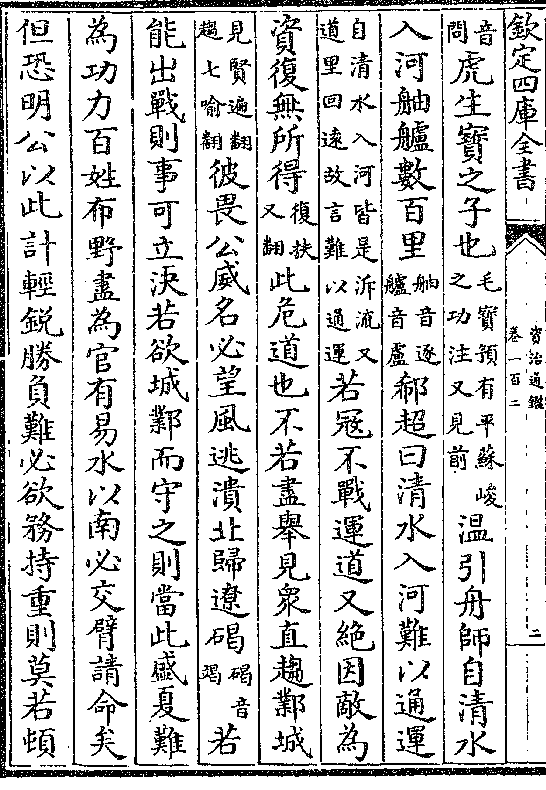 欽定四庫全書
資治通鑑
卷一百二
二
音問虎生寶之子也毛寶預有平蘇峻之功注又見前溫引舟師自清水
入河舳艫數百里舳音逐艫音盧郗超曰清水入河難以通運
自清水入河皆是泝流又道里回遠故言難以通運若寇不戰運道又絶因敵為
資復無所得復扶又翻此危道也不若盡舉見衆直趨鄴城
見賢遍翻趨七喻翻彼畏公威名必望風逃潰北歸遼碣碣音竭若
能出戰則事可立決若欲城鄴而守之則當此盛夏難
為功力百姓布野盡為官有易水以南必交臂請命矣
但恐明公以此計輕鋭勝負難必欲務持重則莫若頓